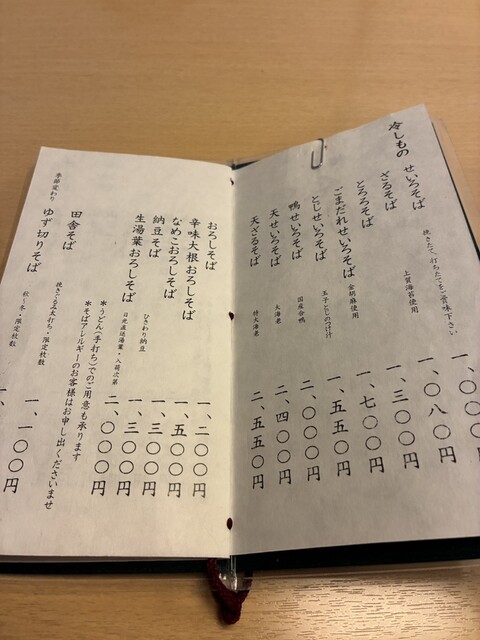 冷しもの
せいろそば 挽きたて、打ちたてをご賞味下さい 一、〇〇〇円
ざるそば 上質海苔使用 一、〇八〇円
とろろそば 一、三〇〇円
ごまだれせいろそば 金胡麻使用 一、七〇〇円
とじせいろそば 玉子とじのつけ汁 一、五五〇円
鴨せいろそば 国産合鴨 二、〇〇〇円
天せいろそば 大海老 二、四〇〇円
天ざるそば 特大海老 二、五五〇円
おろしそば 一、二〇〇円
辛味大根おろしそば 一、五〇〇円
なめこおろしそば 一、三〇〇円
納豆そば ひきわり納豆 一、三〇〇円
生湯葉おろしそば 日光直送湯葉・入荷次第 二、〇〇〇円
*うどん(手打ち)でのご用意も承ります
*そばアレルギーのお客様はお申し出くださいませ
田舎そば 挽きぐるみ太打ち・限定枚数 一、一〇〇円
季節変わり ゆず切りそば 秋〜冬・限定枚数 一、 円